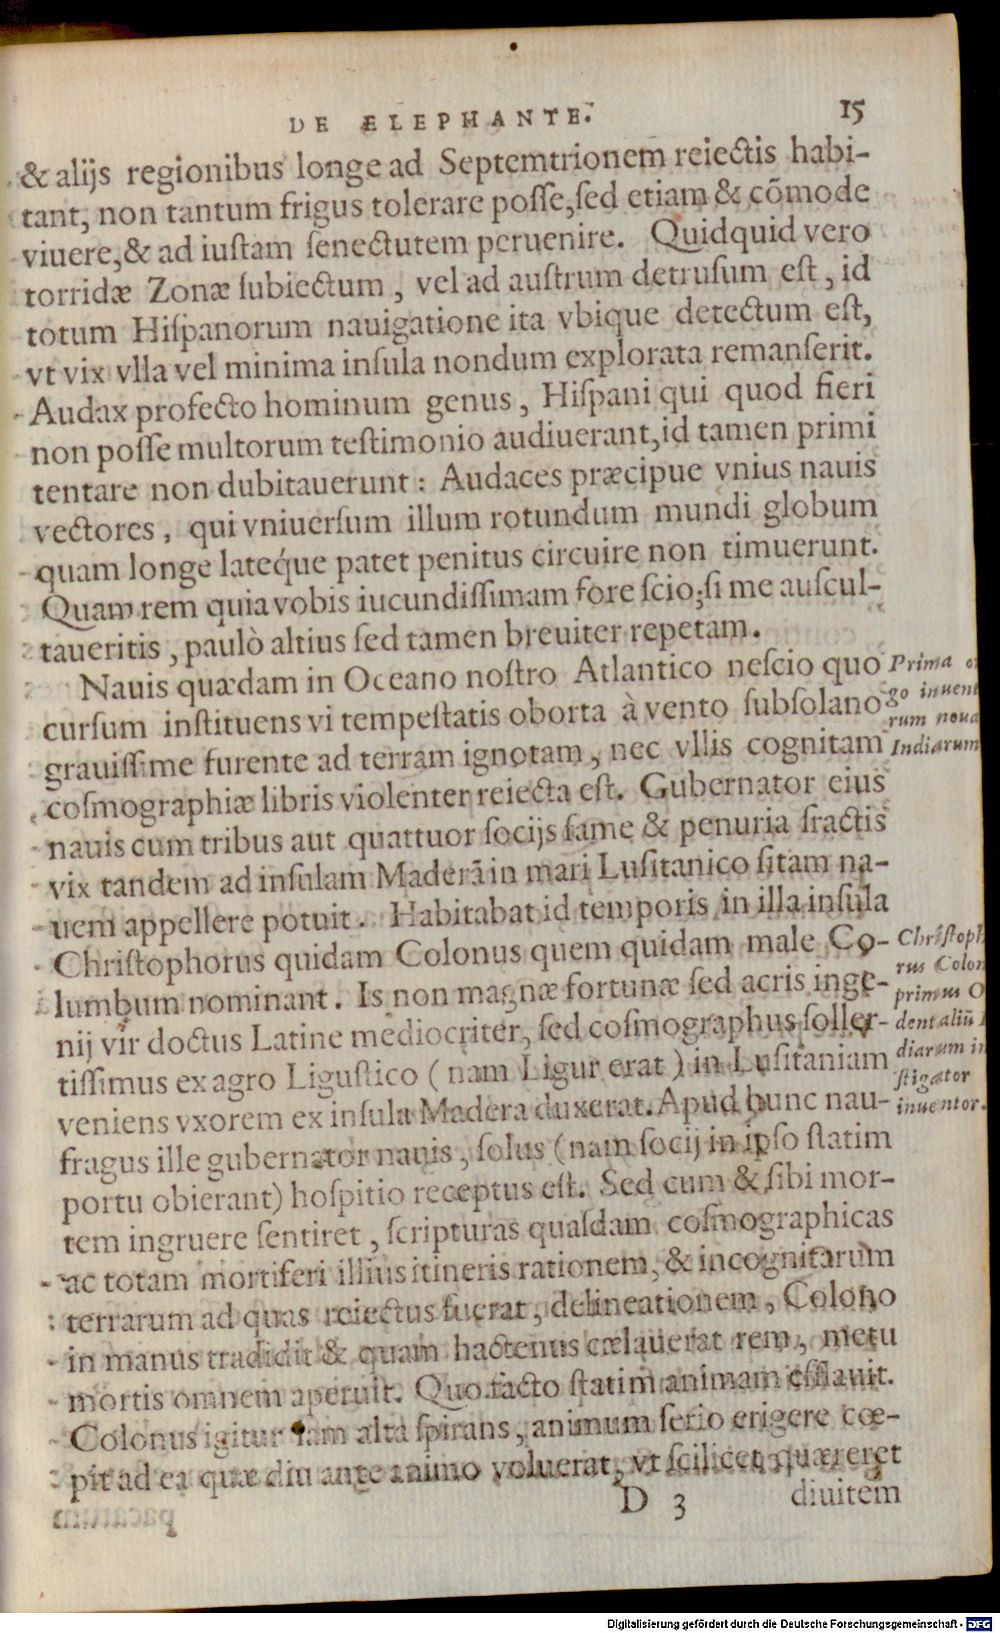 DE ÆLEPHANTE. 15
& alijs regionibus longe ad Septemtrionem reiectis habi-
tant, non tantum frigus tolerare posse, sed etiam & cõmode
viuere, & ad iustam senectutem peruenire. Quidquid vero
torridæ Zonæ subiectum, vel ad austrum detrusum est, id
totum Hispanorum nauigatione ita vbique detectum est,
vt vix vlla vel minima insula nondum explorata remanserit.
Audax profecto hominum genus, Hispani qui quod fieri
non posse multorum testimonio audiuerant, id tamen primi
tentare non dubitauerunt: Audaces præcipue vnius nauis
vectores, qui vniuersum illum rotundum mundi globum
quam longe latéque patet penitus circuire non timuerunt.
Quam rem quia vobis iucundissimam fore scio; si me auscul-
taueritis, paulò altius sed tamen breuiter repetam.
Nauis quædam in Oceano nostro Atlantico nescio quo
cursum instituens vi tempestatis oborta à vento subsolano
grauissime furente ad terram ignotam, nec vllis cognitam
cosmographiæ libris violenter reiecta est. Gubernator eius
nauis cum tribus aut quattuor socijs fame & penuria fractis
vix tandem ad insulam Maderã in mari Lusitanico sitam na-
uem appellere potuit. Habitabat id temporis in illa insula
Christophorus quidam Colonus quem quidam male Co-
lumbum nominant. Is non magnæ fortunæ sed acris inge-
nij vir doctus Latine mediocriter, sed cosmographus soller-
tissimus ex agro Ligustico (nam Ligur erat) in Lusitaniam
veniens vxorem ex insula Madera duxerat. Apud hunc nau-
fragus ille gubernator nauis, solus (nam socij in ipso statim
portu obierant) hospitio receptus est. Sed cum & sibi mor-
tem ingruere sentiret, scripturas quasdam cosmographicas
ac totam mortiferi illius itineris rationem, & incognitarum
terrarum ad quas reiectus fuerat, delineationem, Colono
in manus tradidit & quam hactenus cælauerat rem, metu
mortis omnem aperuit. Quo facto statim animam efflauit.
Colonus igitur iam alta spirans, animum serio erigere cœ-
pit ad ea quæ diu ante animo voluerat, vt scilicet quæreret
D 3 diuitem
Prima o
go inuent
rum noua
Indiarum
Christoph
rus Colon
primus O
dentaliũ
diarum in
stigator
inuentor.
Digitalisierung gefördert durch die Deutsche Forschungsgemeinschaft - DFG